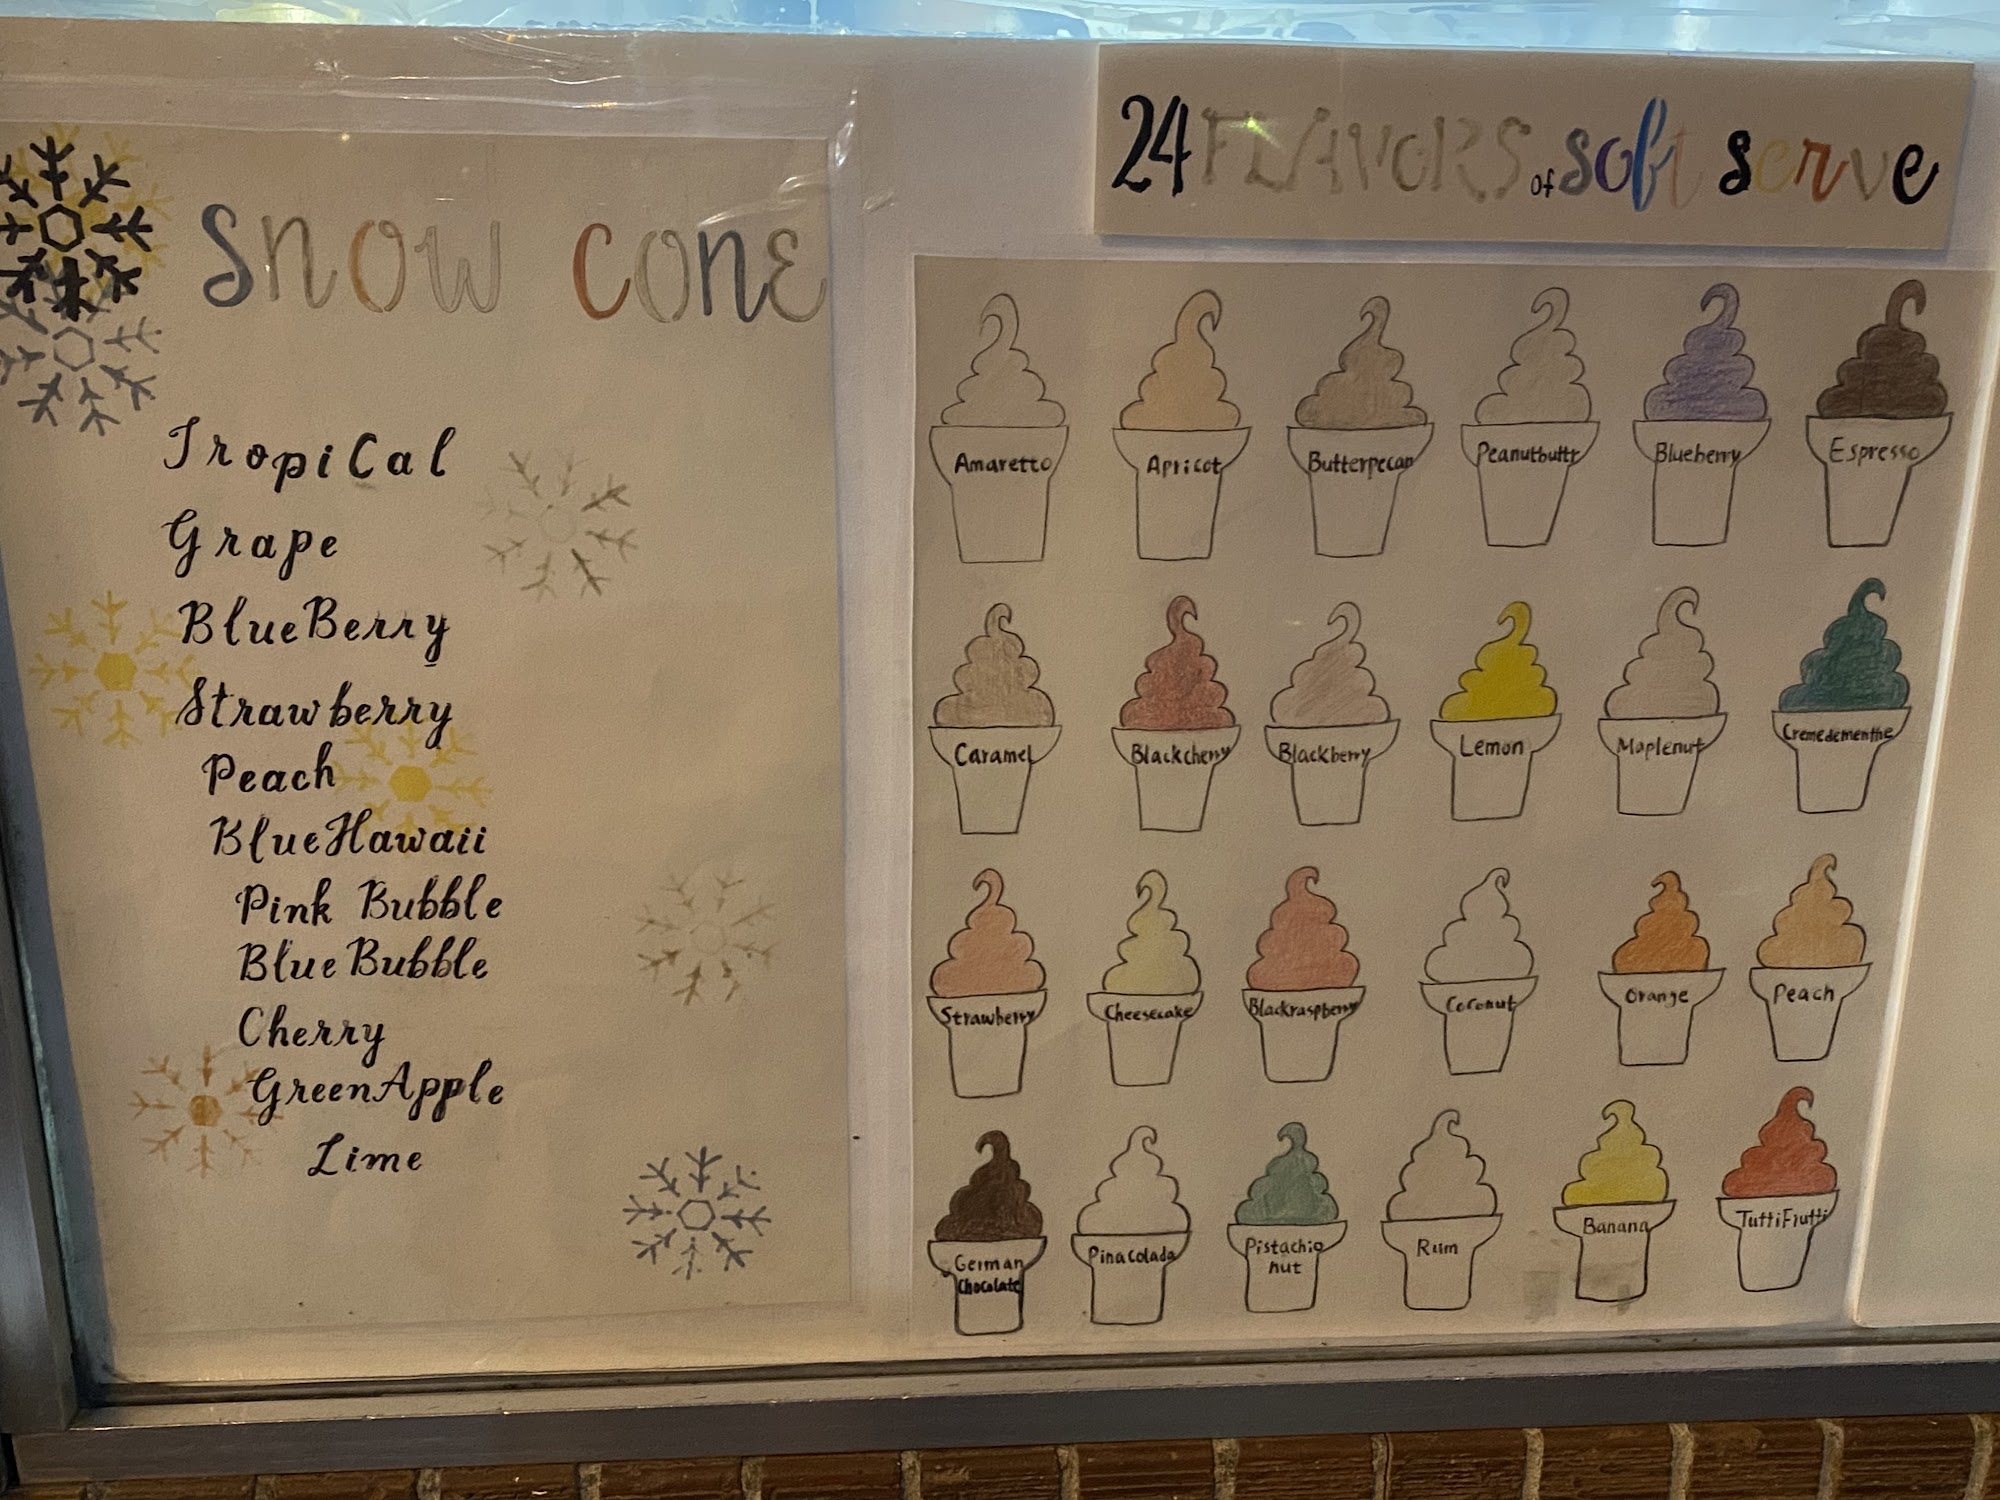 Snow cone
Tropical
Grape
BlueBerry
Strawberry
Peach
BlueHawaii
Pink Bubble
Blue Bubble
Cherry
GreenApple
Lime
24 FLAVORS of soft serve
Amaretto
Apricot
Butterpecan
Peanutbuttr
Blueberry
Espresso
Caramel
Blackcherry
Blackberry
Lemon
Maplenut
Cremedementhe
Strawberry
Cheesecake
Blackraspberry
Coconut
Orange
Peach
German
Chocolate
Pinacolada
Pistachio
nut
Rum
Banana
TuttiFrutti